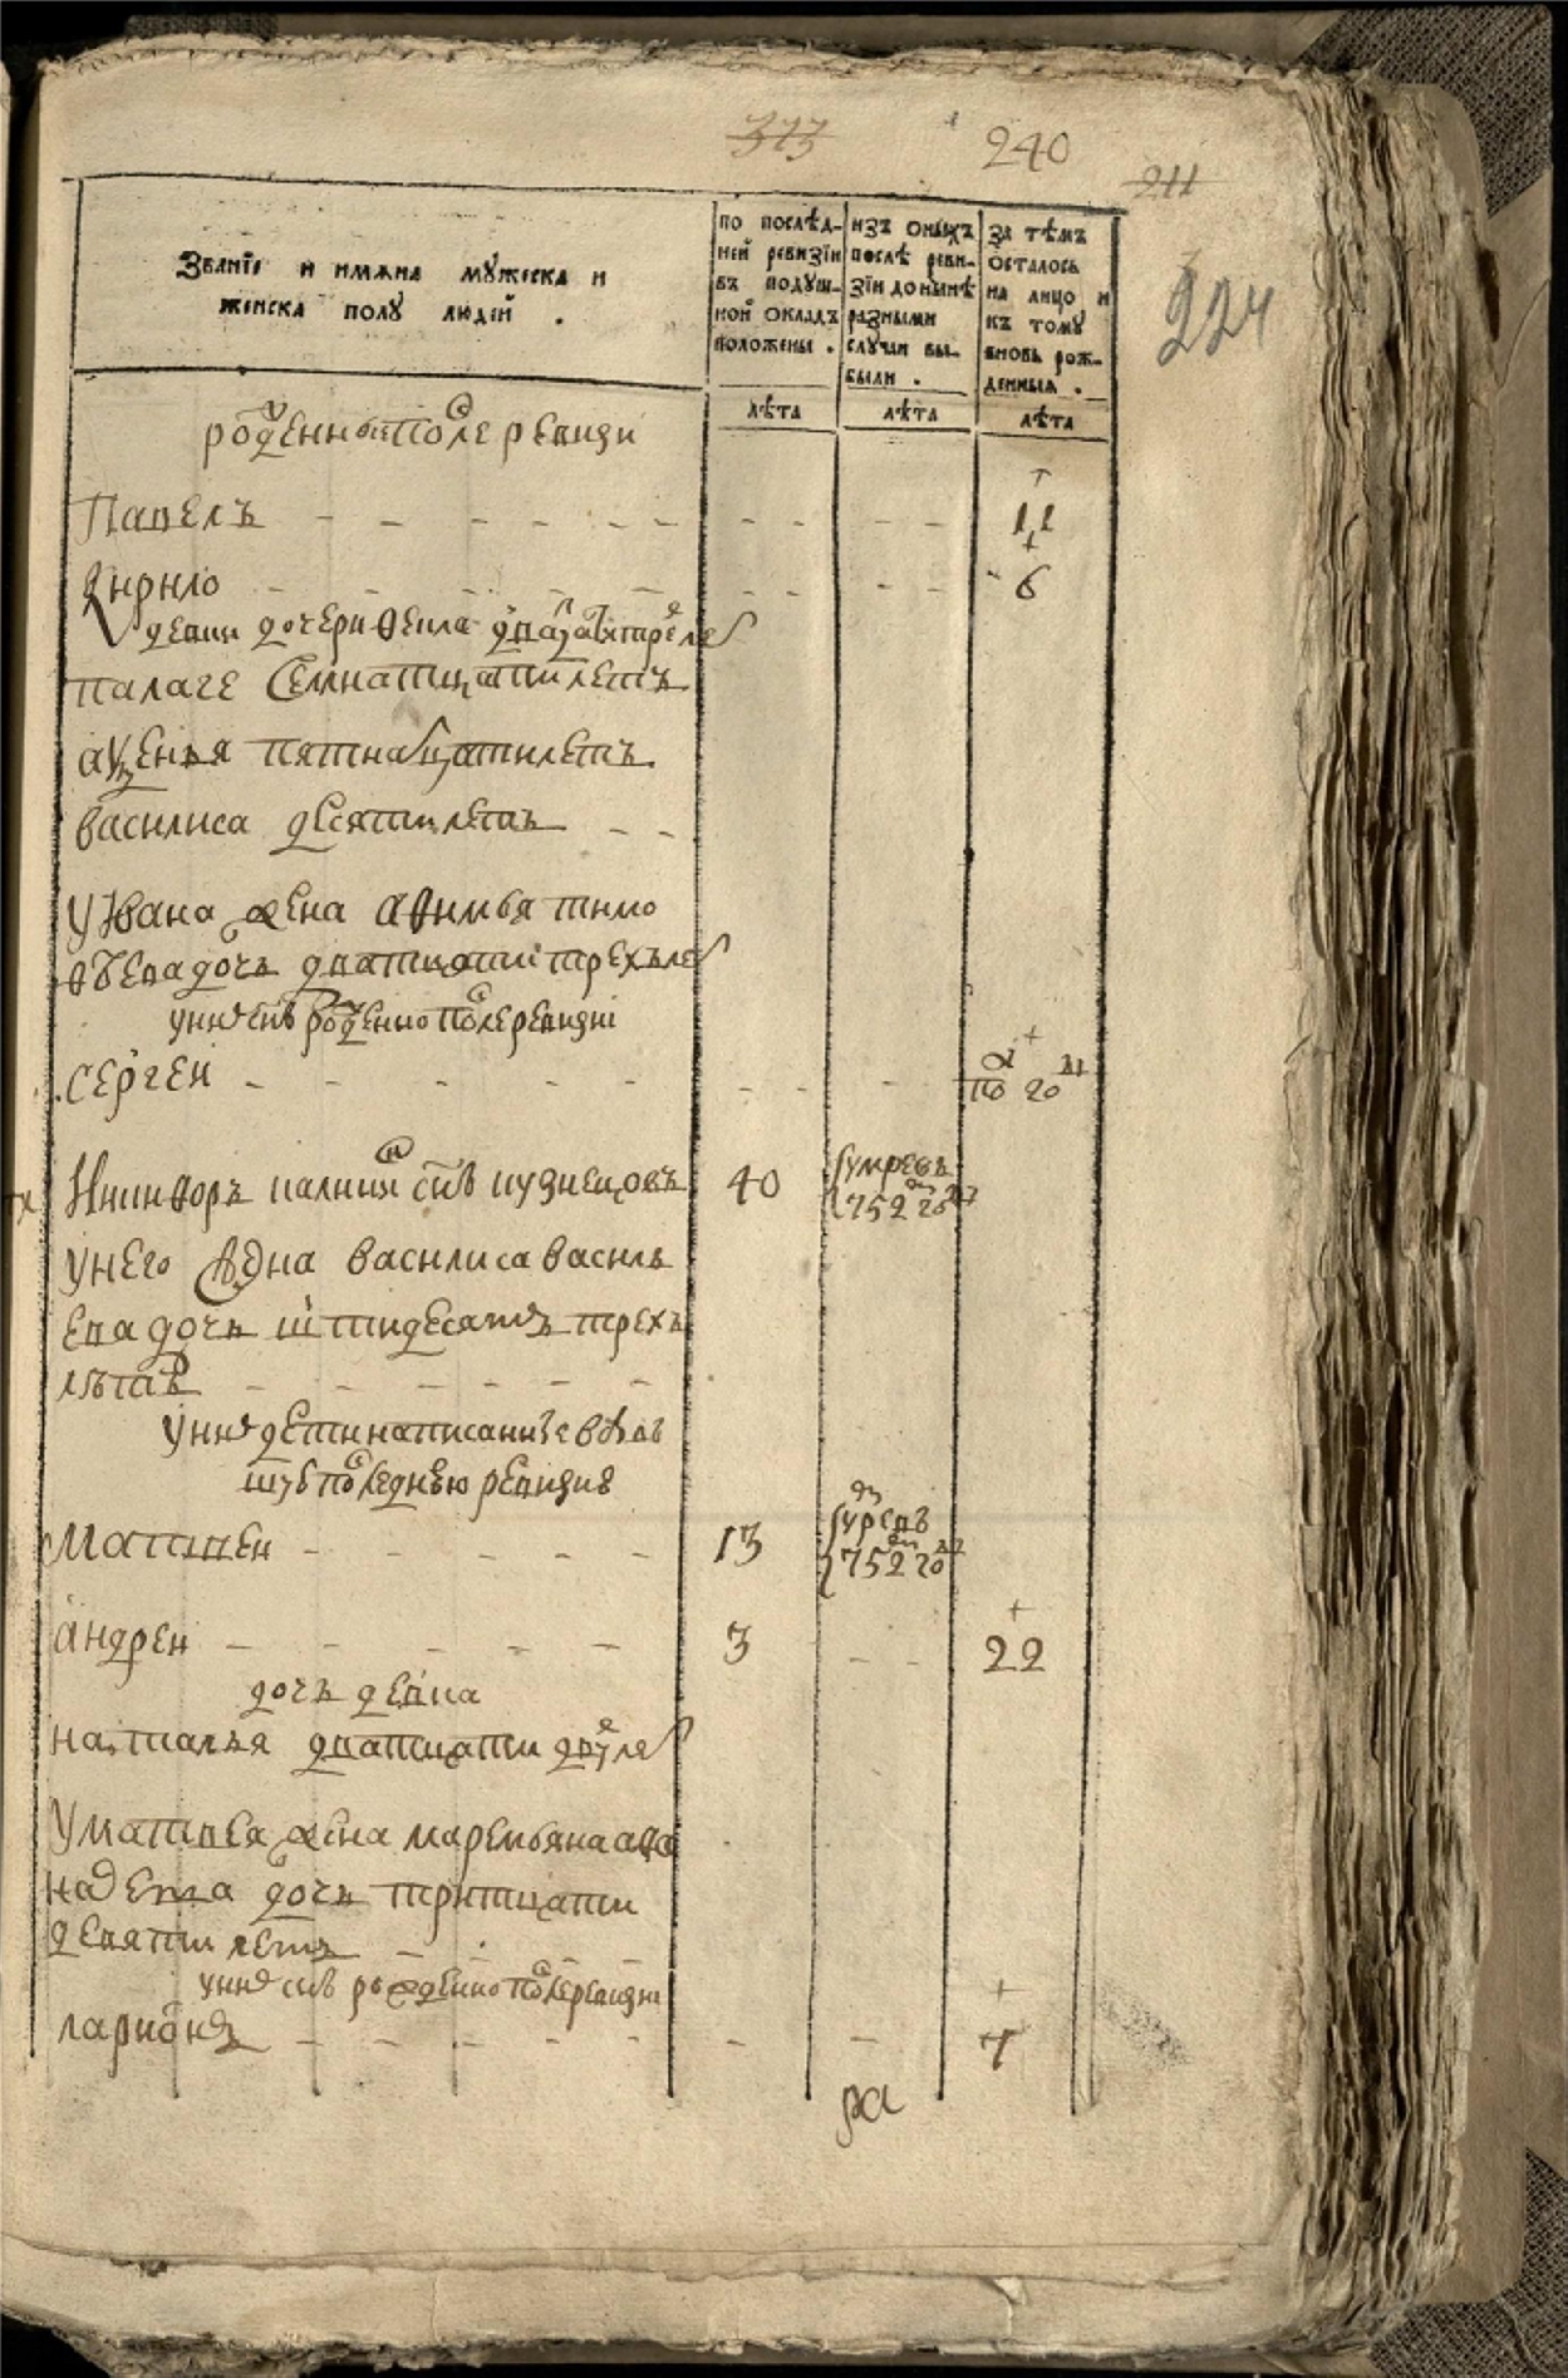 373
240
211
224
Званїе и имяна мужеска и
женска полу людей .
по послѣд-
ней ревизїи
въ подуш-
ной окладъ
положены .
изъ оныхъ
послѣ реви-
зїи до нынѣ
разными
случаи вы-
были .
за тѣмъ
осталось
на лицо и
къ тому
вновь рож-
денныя .
лѣта
лѣта
лѣта
рожденныи после ревизи
Павелъ - - - - - - - - - - 11
Кирило - - - - - - - - - 6
девки дочери Фекла дватцати трех лет
палаге семнатцати летъ
аксенья пятнатцати летъ
василиса десяти летъ - -
у Ивана жена афимья тимо
фѣева дочь дватцати трехъ лет
у них снъ рожденно после ревизиі
сергеи - - - - - - - -
по 20
Никифоръ калинин снъ кузнецовъ 40 умре въ
752 году
у него жена василиса василь
ева дочь шти десятъ трехъ
лѣтъ - - - - - -
у них дети написанные въ
последнюю ревизию
Матвеи - - - - - 13 умре въ
752 году
андреи - - - - - 3 - - 22
дочь девка
наталья дватцати двух лет
у матвея жена маремьяна афо
насева дочь тритцати
девяти летъ - - - -
у них снъ рожденно после ревизи
ларионъ - - - - - - - - 7
ра